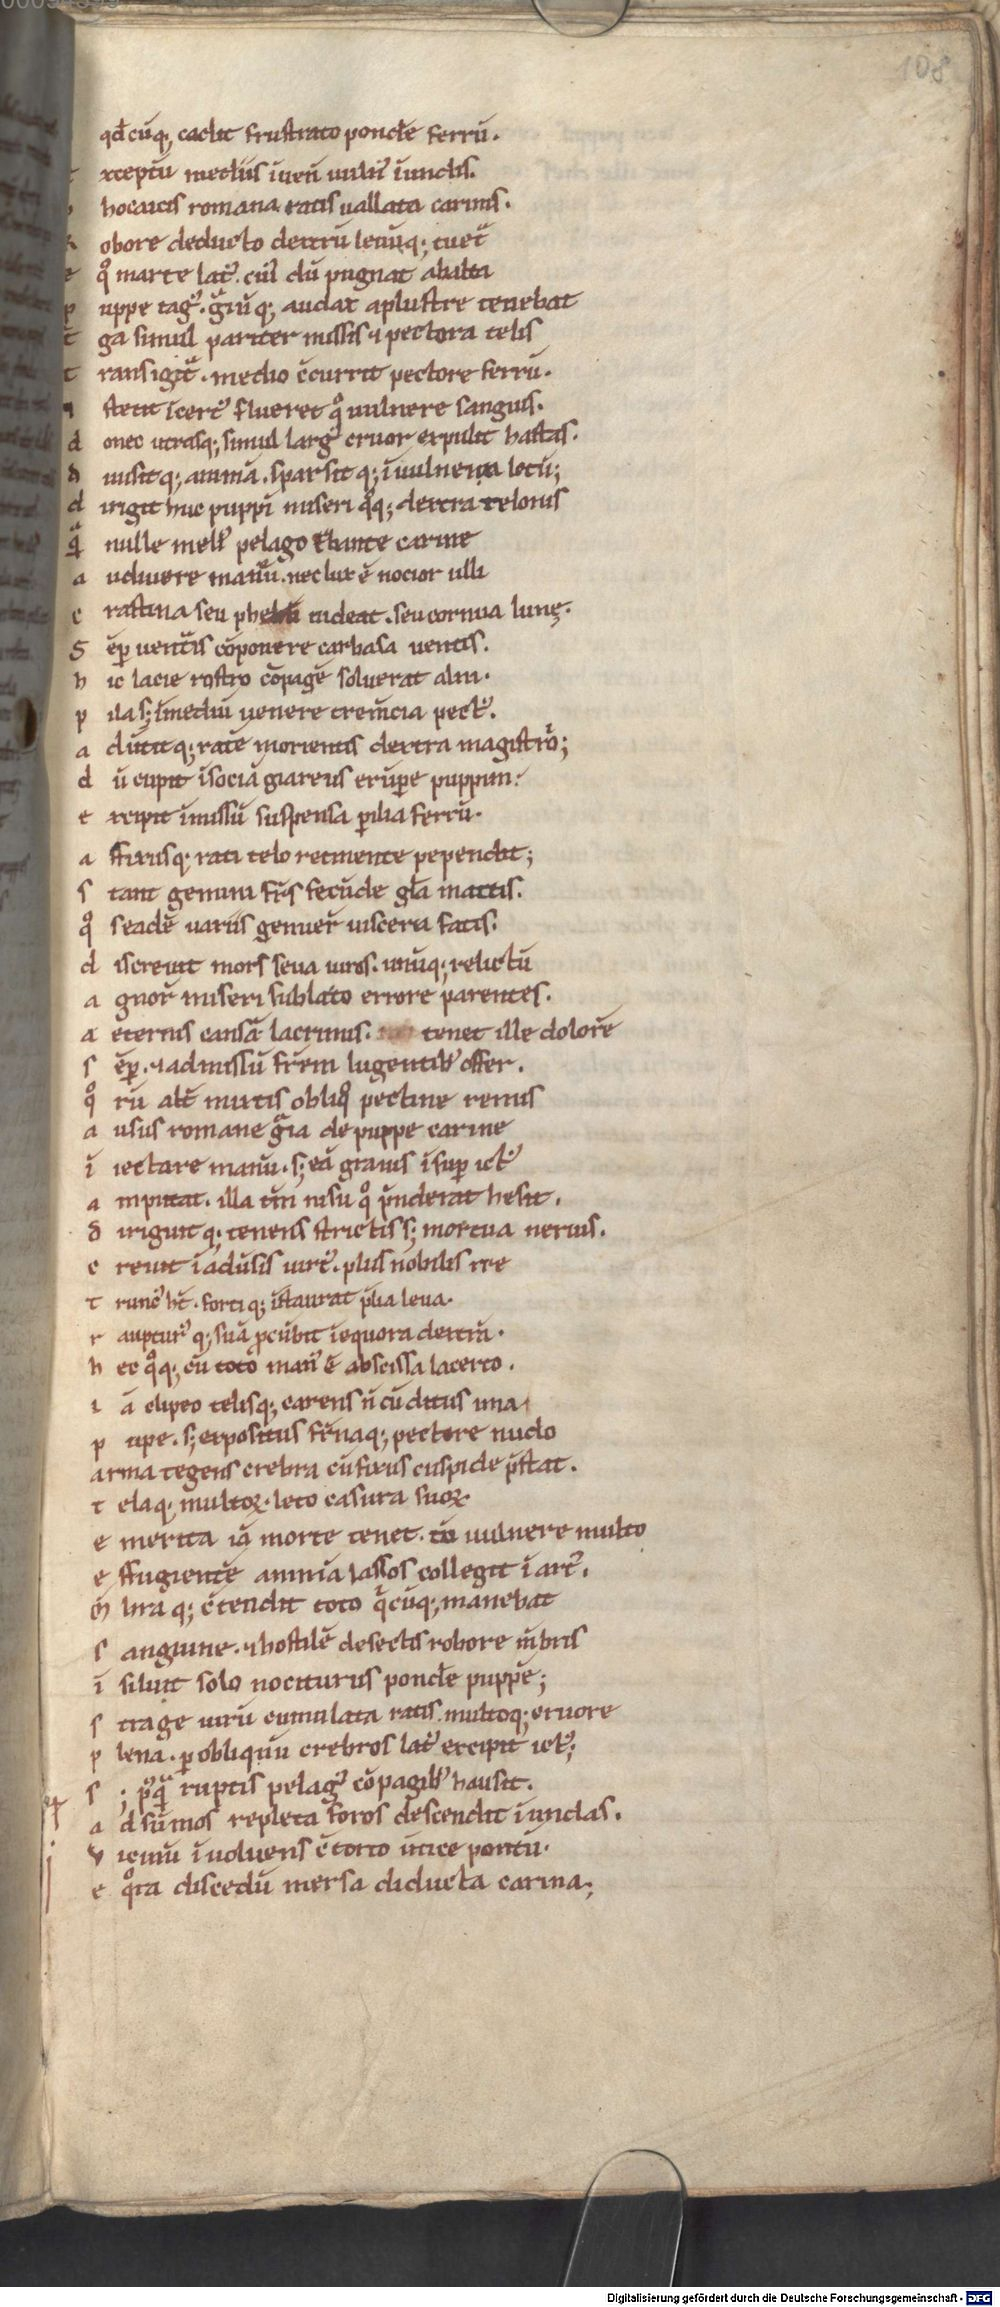 108
qđcūq; cadit frustrato ponđe ferrū.
xceptū mediis iuenī uulnꝰ īundis.
hocaicis romana ratis uallata carinis.
R obore deducto dextrū leuūq; tuet̄
e qͦ marte latꝰ. cuī dū pugnat ab alta
p uppe tagꝰ. gͣiūq; audax aplustre tenebat
t ga simul pariter missis ⁊ pectora telis
t ransigit̄. medio c̄currit pectore ferrū.
⁊ stetit īcertꝰ flueret qͦ uulnere sanguis.
d onec utrasq; simul largꝰ cruor expulit hastas.
d iuisitq; animā. sparsitq; ī uulnera letū;
d irigit huc puppī miseri qͦq; dextra telonis
qͣ nulle meliꝰ pelago t̄bante carine
a udiuere manū. nec lux ē nocior ulli
c rastina seu phebū uideat. seu cornua lunę.
S ēp̄ uent̄is cōponere carbasa uentis.
h ic lacie rostro cōpagē soluerat alni.
p ila s; ī mediū uenere trem̄cia pectꝰ.
a duītitq; ratē morientis dextra magistri;
d ū cupit ī sociā giareus erūpe puppim.
e xcipit īmissū suspensa p̲ ilia ferrū.
a ffixusq; rati telo retinente pependit;
s tant gemini fr̄s fecūde gl̄a matris.
qͦ s eadē uariis genuer̄ uiscera fatis.
d iscreuit mors seua uiros. unūq; relictū
a gnor̄ miseri sublato errore parentes.
a eternis causā lacrimis. tenet ille dolorē
s ēp̲. ⁊ admissū fr̄em lugentibꝰ offer.
qͦ rū alt̄ mixtis obliqͦ pectine remis
a usus romane gͣia de puppe carine
ī iectare manū. s; eā grauis īsup̲ ictꝰ
a mputat. illa tm̄ nisu qͦ p̄nderat hesit.
d iriguitq; tenens strictis s; mortua neruis.
c reuit ī aduīsis uirtꝰ. plus nobilis ire
t runcꝰ ht̄. fortiq; īstaurat p̄lia leua.
r aupturꝰq; suā p̲cūbit ī equora dextrā.
h ec qͦq; cū toto manꝰ ē abscissa lacerto.
i ā clipeo telisq; carens n̄ cūditus ima
p upe. s; expositus fr̄naq; pectore nudo
arma tegens crebra cūfixus cuspide p̄stat.
t elaq; multoꝝ. leto casura suoꝝ.
e merita iā morte tenet. tū uulnere multo
e ffugientē animā lassos collegit ī artꝰ.
m̄ braq; c̄tendit toto qͣcūq; manebat
s anguine. ⁊ hostilē desectis robore m̄bris
ī siluit solo nociturus ponđe puppē;
s trage uirū cumulata ratis. multoq; cruore
p lena. p̲ obliquū crebros latꝰ excipit ictꝰ;
s ; pꝰqͣ ruptis pelagꝰ cōpagibꝰ hausit.
a d sūmos repleta foros descendit ī undas.
v icinū ī uoluens c̄torto ūtice pontū.
e qͦra discedū mersa diducta carina;
Digitalisierung gefördert durch die Deutsche Forschungsgemeinschaft - DFG